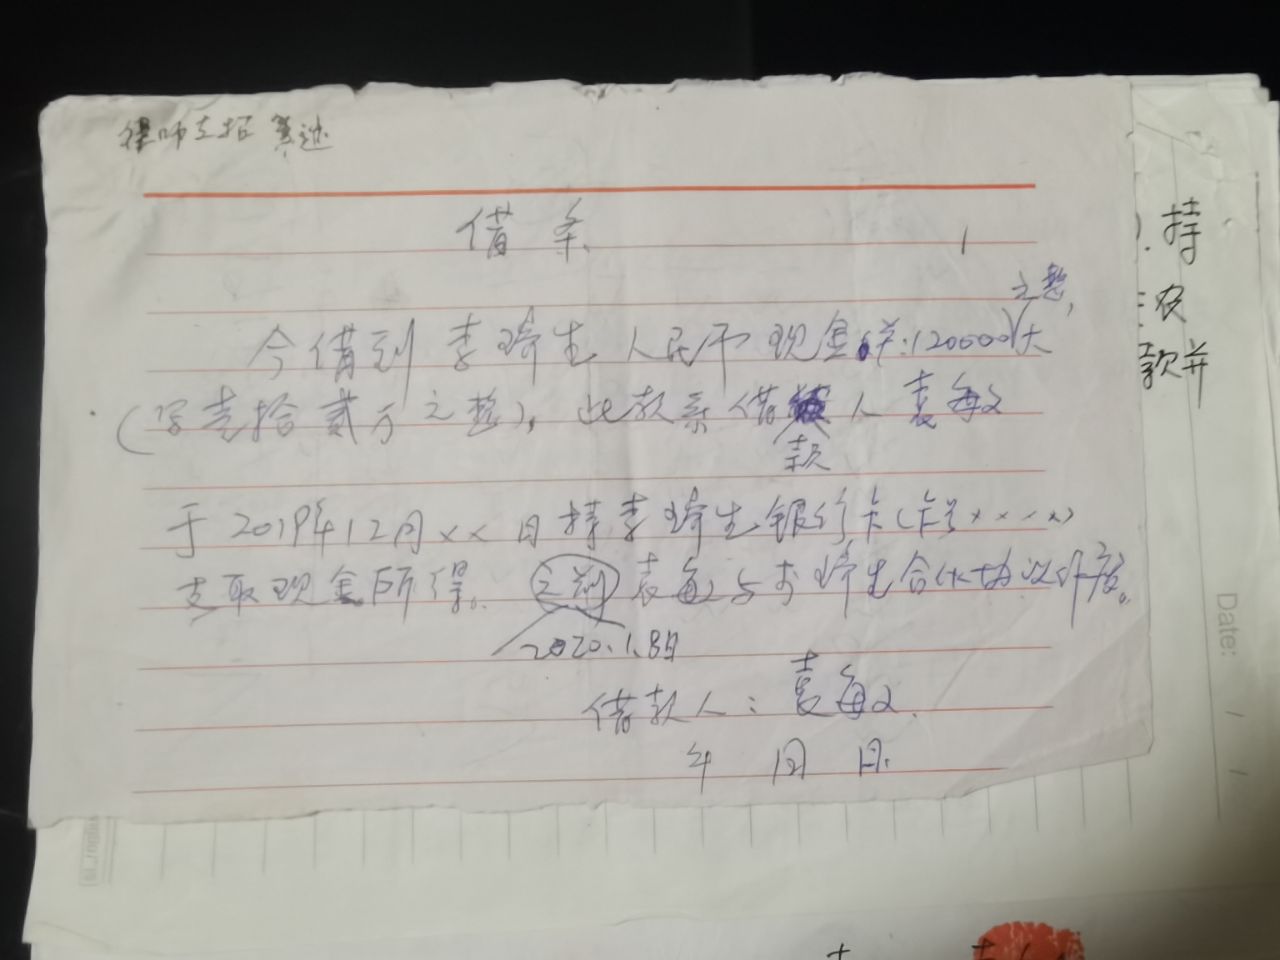 律师支招
借条
1
之整,
今借到李琦生人民币现金 120000(大
(写壹拾贰万之整),此款系借 人袁每文
款
于2019年12月××日持李琦生银行卡(卡号××××)
支取现金所得。之前袁每文与李琦生合伙协议作废。
2020.1.8日
借款人:袁每文.
年 月 日.
持
农
款并
Date: / /